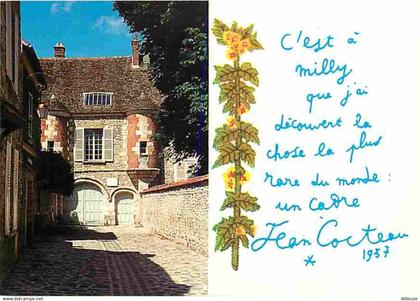 C'est à
milly
que j'ai
découvert la
chose la plus
rare du monde :
un cadre
Jean Cocteau
* 1957
delcampe.net
didouce